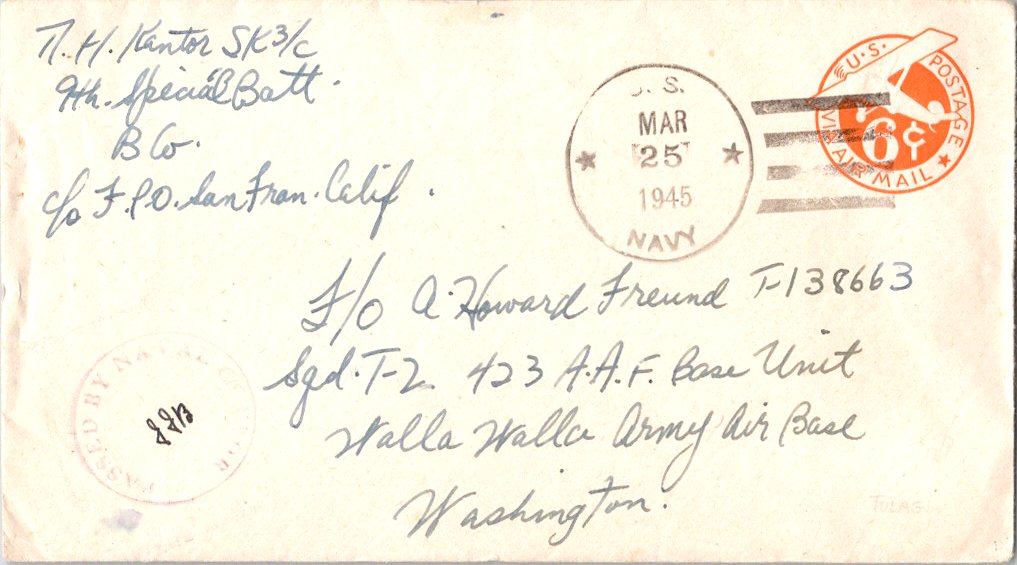 N. H. Kantor SK3/c
9th. Special Batt.
B Co.
c/o F.P.O. San Fran. Calif.
U.S. POSTAGE
6¢
VIA AIR MAIL
U. S.
MAR
25
1945
NAVY
F/O A. Howard Freund T-138663
Sqd. T-2. 423 A.A.F. Base Unit
Walla Walla Army Air Base
Washington.
PASSED BY NAVAL CENSOR
TULAG